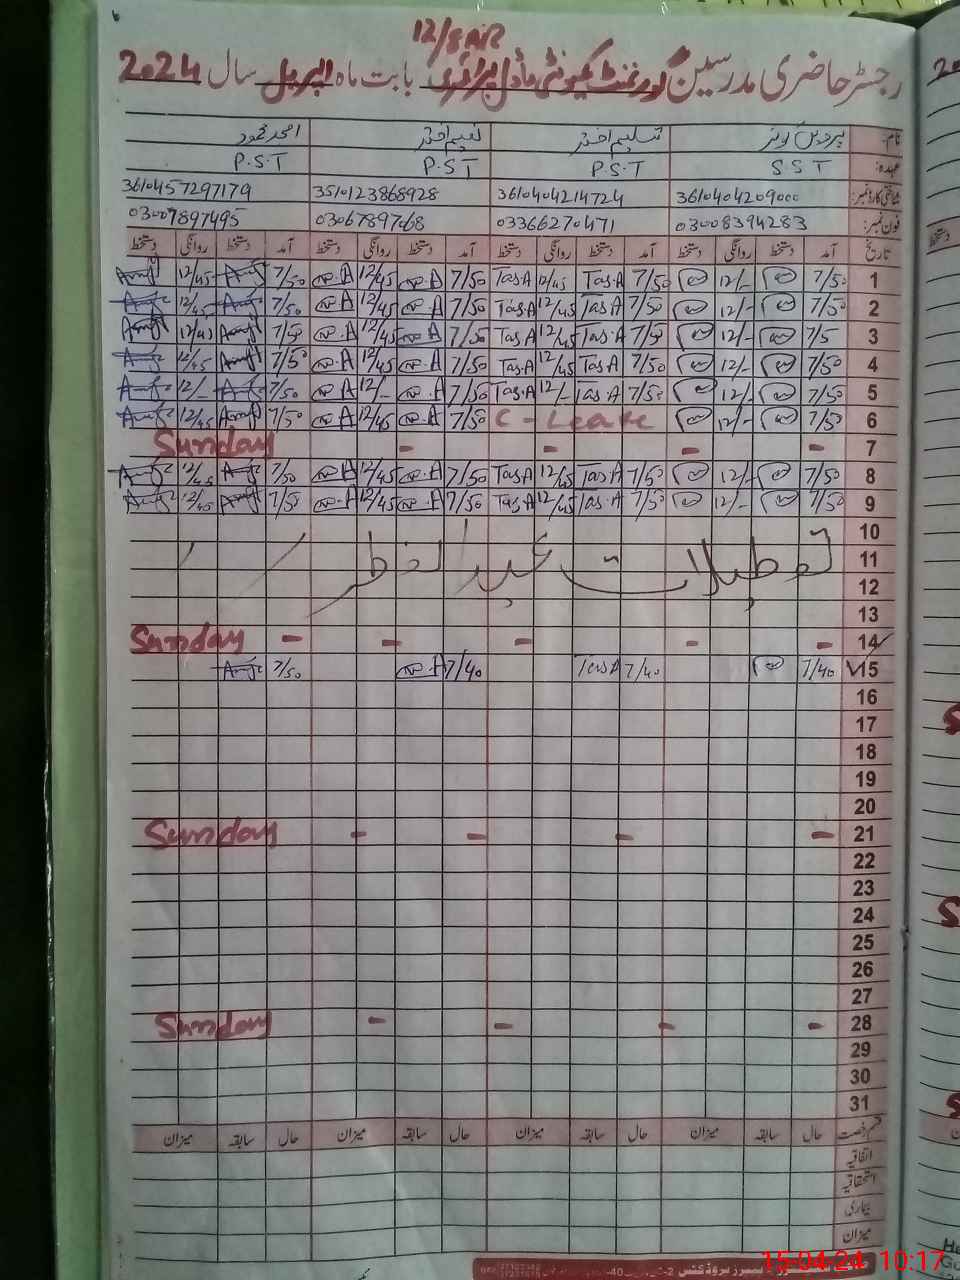 12/8AR
رجسٹر حاضری مدرسین گورنمنٹ کمیونٹی ماڈل پرائمری بابت ماہ اپریل سال 2024
نام: پروین کوثر تسلیم اختر نعیم اختر امجد محمود
عہدہ: S.S.T P.S.T P.S.T P.S.T
شناختی کارڈ نمبر: 3610404209000 3610404214724 3510123868928 3610457297179
فون نمبر: 03008394283 03366270471 03067897768 03007897495
تاریخ آمد دستخط روانگی دستخط آمد دستخط روانگی دستخط آمد دستخط روانگی دستخط آمد دستخط روانگی دستخط
1 7/50 12/- 7/50 Tas.A 12/45 Tas.A 7/50 12/45 7/50 12/45
2 7/50 12/- 7/50 Tas.A 12/45 Tas.A 7/50 12/45 7/50 12/45
3 7/5 12/- 7/50 Tas.A 12/45 Tas.A 7/50 12/45 7/50 12/45
4 7/50 12/- 7/50 Tas.A 12/45 Tas.A 7/50 12/45 7/50 12/45
5 7/50 12/- 7/50 Tas.A 12/- Tas.A 7/50 12/- 7/50 12/-
6 7/50 12/- C-Leave 7/50 12/45 7/50 12/45
7 - - - - Sunday
8 7/50 12/- 7/50 Tas.A 12/45 Tas.A 7/50 12/45 7/50 12/45
9 7/50 12/- 7/50 Tas.A 12/45 Tas.A 7/50 12/45 7/50 12/45
10
11 تعطیلات عید الفطر
12
13
14 - - - - - Sunday
15 7/40 7/40 Tas.A 7/40 7/50
16
17
18
19
20
21 - - - - Sunday
22
23
24
25
26
27
28 - - - - Sunday
29
30
31
قسم رخصت حال سابقہ میزان حال سابقہ میزان حال سابقہ میزان حال سابقہ میزان
اتفاقیہ
استحقاقیہ
بیماری
میزان
15-04-24 10:17